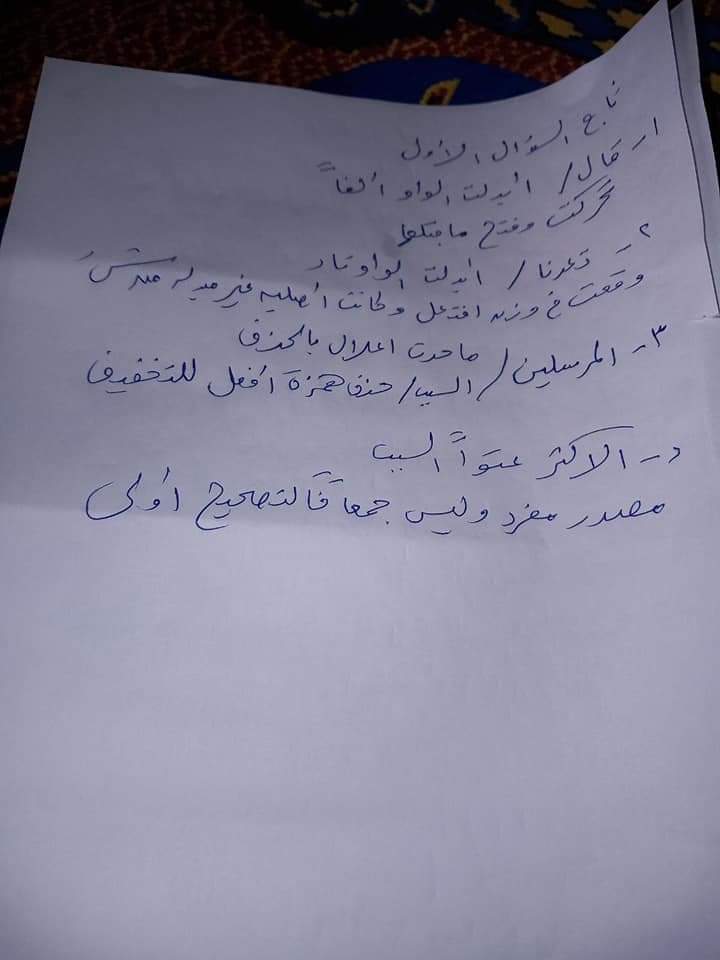 تابع السؤال الأول
١- قال / أبدلت الواو ألفاً
تحركت وفتح ما قبلها
٢- / أبدلت الواو تاء
وقعت في وزن افتعل وكانت أصلية غير مبدلة من شيء
ما حدث اعلال بالحذف
٣- المرسلين / السبب / حذف همزة أفعل للتخفيف
د- الاكثر عتواً السبب
مصدر مفرد وليس جمعاً فالتصحيح أولى